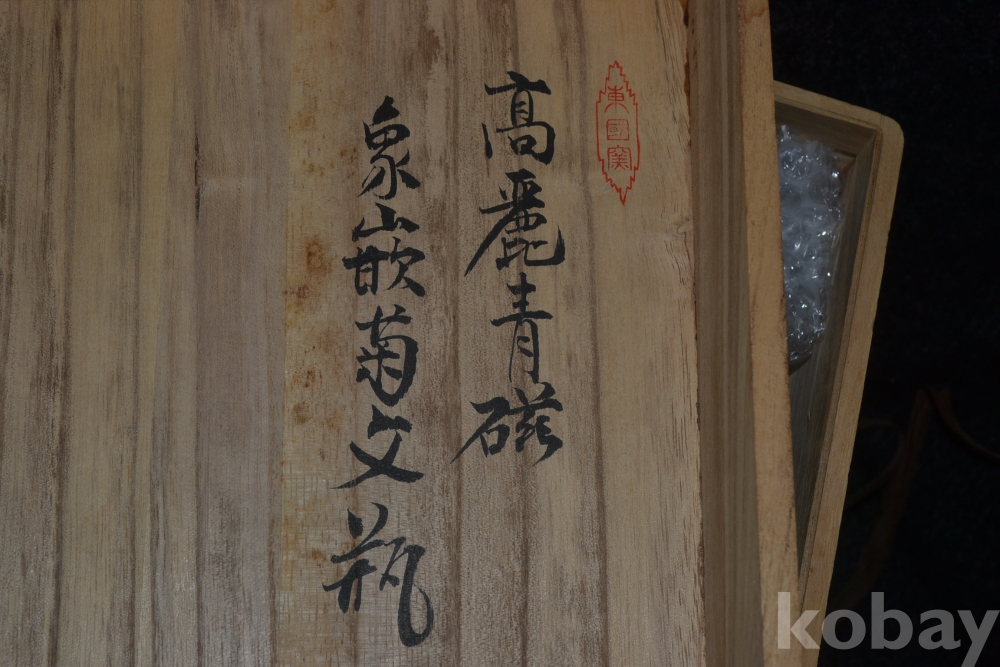 東國窯
高麗青磁
象嵌菊文瓶
kobay